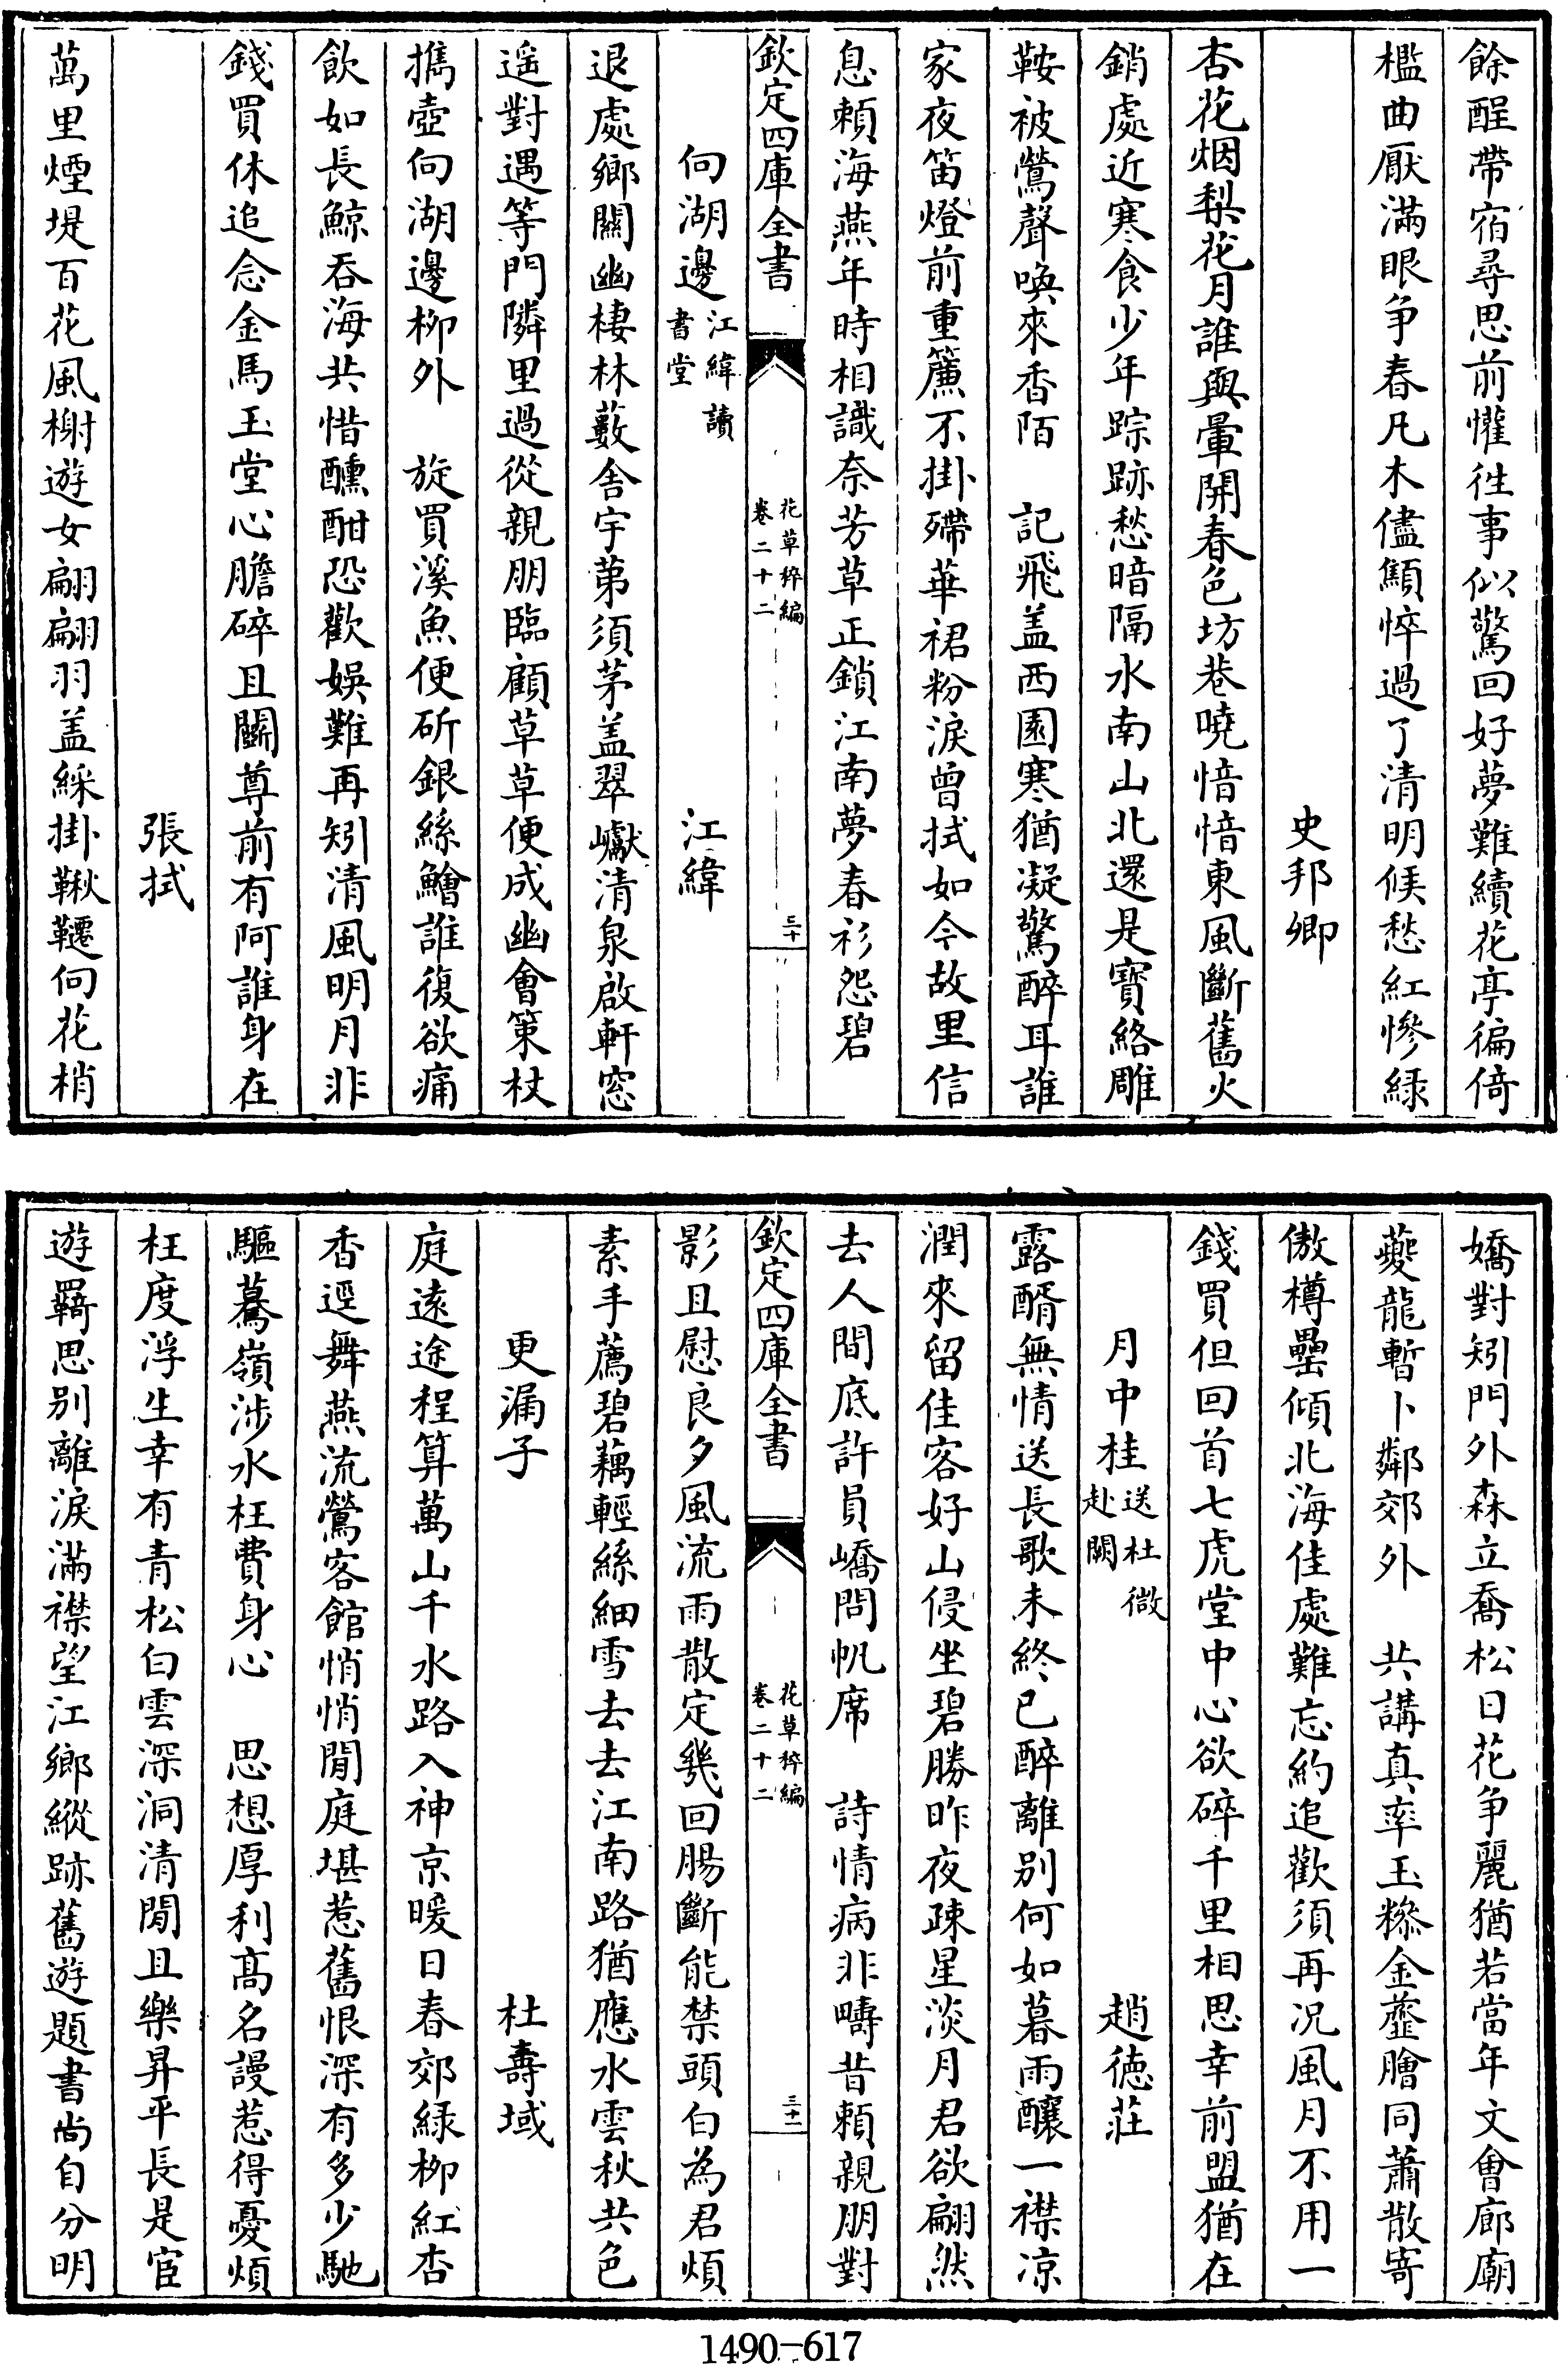 餘酲帶宿尋思前懽徃事似驚回好夢難續花亭徧倚
檻曲厭滿眼争春凡木儘顦悴過了清明候愁紅慘緑
史邦卿
杏花烟梨花月誰與暈開春色坊巷曉愔愔東風斷舊火
銷處近寒食少年踪跡愁暗隔水南山北還是寳絡雕
鞍被鶯聲喚來香陌　記飛盖西園寒猶凝驚醉耳誰
家夜笛燈前重簾不掛殢華裾粉淚曾拭如今故里信
息賴海燕年時相識奈芳草正鎖江南夢春衫怨碧
欽定四庫全書
花草稡編
卷二十二
三十
向湖邊江緯讀書堂
江緯
退處鄉關幽棲林藪舍宇第須茅盖翠巘清泉啟軒窓
遥對遇等門隣里過從親朋臨顧草草便成幽會策杖
攜壺向湖邊柳外　旋買溪魚便斫銀絲鱠誰復欲痛
飲如長鯨吞海共惜醺酣恐歡娛難再矧清風明月非
錢買休追念金馬玉堂心膽碎且鬭尊前有阿誰身在
張拭
萬里煙堤百花風榭遊女翩翩羽盖綵掛鞦韆向花梢
嬌對矧門外森立喬松日花争麗猶若當年文會廊廟
夔龍暫卜鄰郊外　共講真率玉糝金虀膾同蕭散寄
傲樽罍傾北海佳處難忘約追歡須再况風月不用一
錢買但回首七虎堂中心欲碎千里相思幸前盟猶在
月中桂送杜微赴闕
趙徳莊
露醑無情送長歌未終已醉離别何如暮雨釀一襟凉
潤來留佳客好山侵坐碧勝昨夜疎星淡月君欲翩然
去人間底許員嶠問帆席　詩情病非疇昔賴親朋對
欽定四庫全書
花草稡編
卷二十二
三十一
影且慰良夕風流雨散定幾回腸斷能禁頭白為君煩
素手薦碧藕輕絲細雪去去江南路猶應水雲秋共色
更漏子
杜壽域
庭遠途程算萬山千水路入神京暖日春郊緑柳紅杏
香逕舞燕流鶯客館悄悄閒庭堪惹舊恨深有多少馳
驅驀嶺涉水枉費身心　思想厚利髙名謾惹得憂煩
枉度浮生幸有青松白雲深洞清閒且樂昇平長是宦
遊羇思别離淚滿襟望江鄉縱跡舊遊題書尚自分明
1490-617